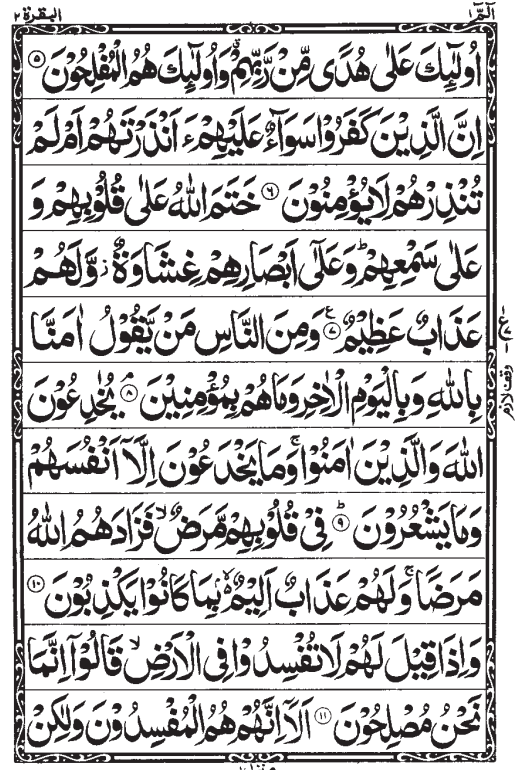 الٓمّٓ ١ البقرة ٢
اُولٰٓئِكَ عَلٰى هُدًى مِّنْ رَّبِّهِمْ ۙ وَاُولٰٓئِكَ هُمُ الْمُفْلِحُوْنَ ۝٥
اِنَّ الَّذِيْنَ كَفَرُوْا سَوَآءٌ عَلَيْهِمْ ءَاَنْذَرْتَهُمْ اَمْ لَمْ
تُنْذِرْهُمْ لَا يُؤْمِنُوْنَ ۝٦ خَتَمَ اللّٰهُ عَلٰى قُلُوْبِهِمْ وَ
عَلٰى سَمْعِهِمْ ؕ وَعَلٰٓى اَبْصَارِهِمْ غِشَاوَةٌ ؗ وَّلَهُمْ
عَذَابٌ عَظِيْمٌ ۝٧ ع وَمِنَ النَّاسِ مَنْ يَّقُوْلُ اٰمَنَّا
بِاللّٰهِ وَبِالْيَوْمِ الْاٰخِرِ وَمَا هُمْ بِمُؤْمِنِيْنَ ۝٨ ۘ يُخٰدِعُوْنَ
اللّٰهَ وَالَّذِيْنَ اٰمَنُوْا ۚ وَمَا يَخْدَعُوْنَ اِلَّآ اَنْفُسَهُمْ
وَمَا يَشْعُرُوْنَ ۝٩ ؕ فِيْ قُلُوْبِهِمْ مَّرَضٌ ۙ فَزَادَهُمُ اللّٰهُ
مَرَضًا ۚ وَلَهُمْ عَذَابٌ اَلِيْمٌ ۢ ۙ بِمَا كَانُوْا يَكْذِبُوْنَ ۝١٠
وَاِذَا قِيْلَ لَهُمْ لَا تُفْسِدُوْا فِى الْاَرْضِ ۙ قَالُوْٓا اِنَّمَا
نَحْنُ مُصْلِحُوْنَ ۝١١ اَلَآ اِنَّهُمْ هُمُ الْمُفْسِدُوْنَ وَلٰكِنْ
وقف لازم
منزل ١